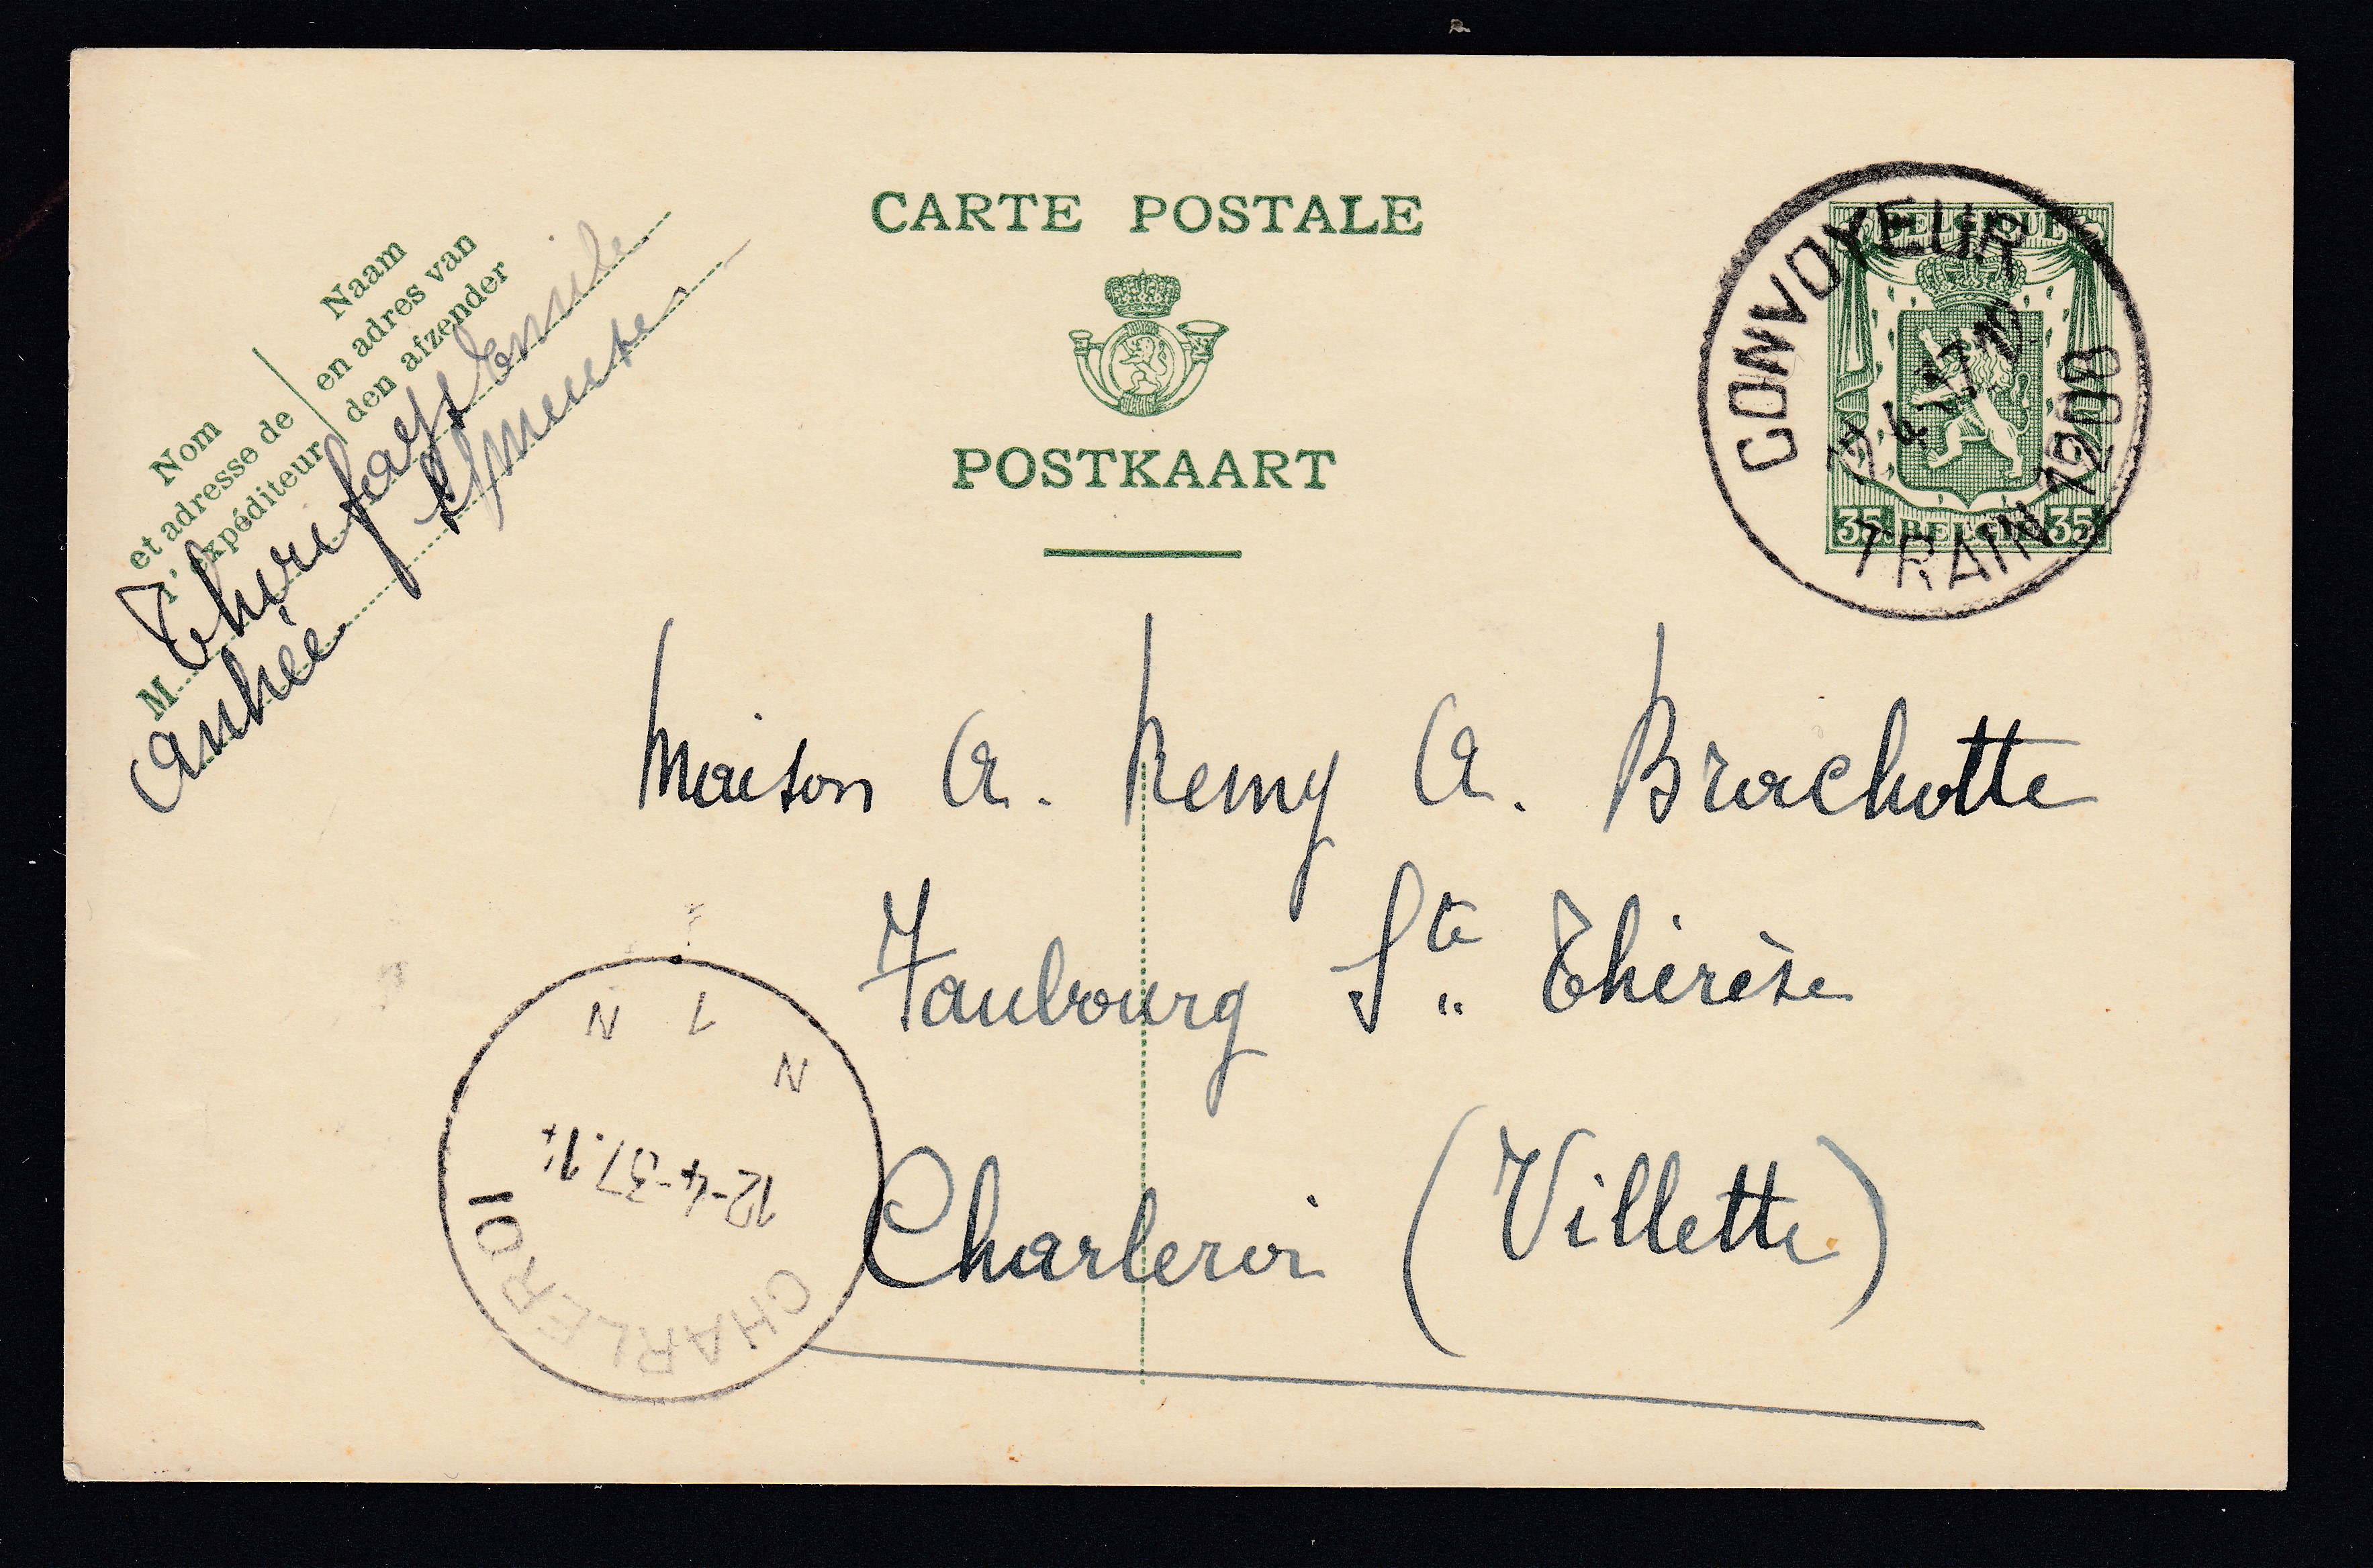 CARTE POSTALE
POSTKAART
Nom
et adresse de
l'expéditeur
Naam
en adres van
den afzender
M Thirifays Emile
Anhée s/Meuse
BELGIQUE
35 BELGIË 35
CONVOYEUR
12 4 37
TRAIN 1200
Maison A. Remy A. Brachotte
Faubourg Ste Thérèse
Charleroi (Villette)
N 1 N
N
12-4-37.14
CHARLEROI